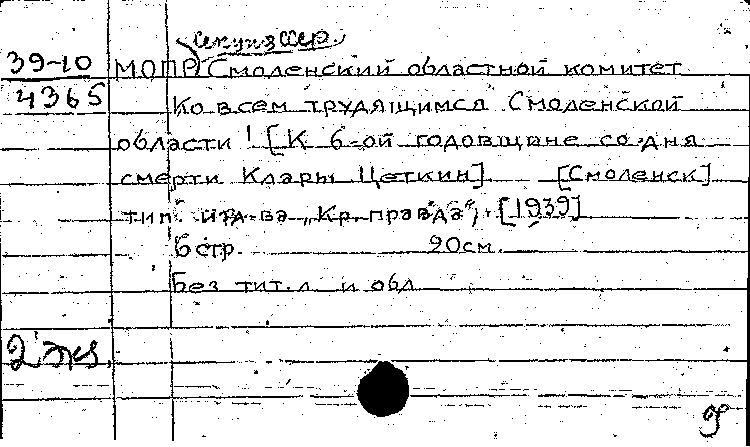 секция СССР
39-10
4365
МОПР Смоленский областной комитет
Ко всем трудящимся Смоленской
области! [К 6-ой годовщине со дня
смерти Клары Цеткин]. [Смоленск]
тип. изд-ва „Кр. правда", [1939]
6 стр. 20см.
Без тит. л. и обл.
2 экз.